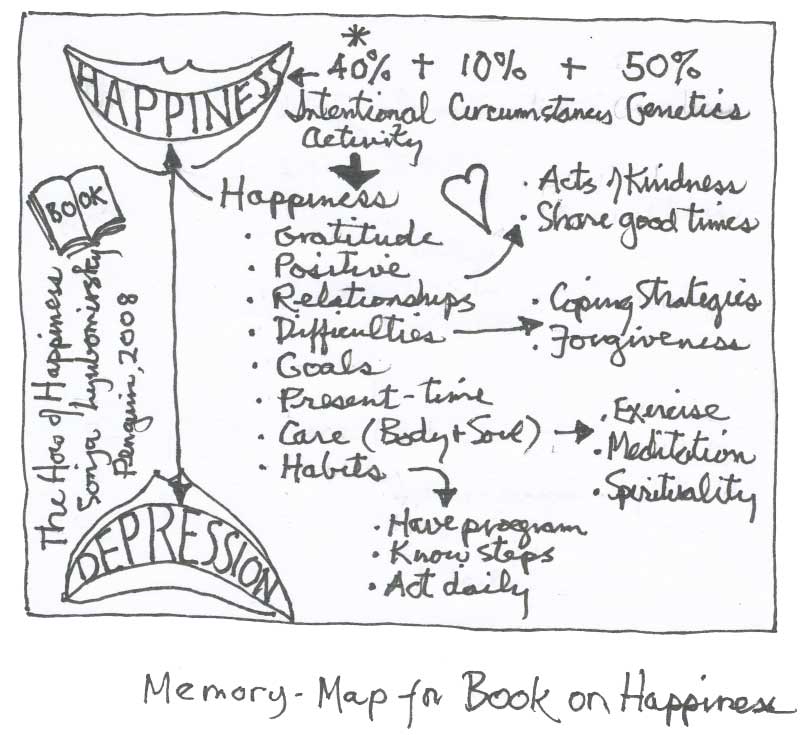 HAPPINESS
* 40% + 10% + 50%
Intentional Circumstances Genetics
Activity
BOOK
The How of Happiness
Sonja Lyubomirsky
Penguin, 2008
Happiness
• Gratitude
• Positive
• Relationships
• Difficulties
• Goals
• Present-time
• Care (Body + Soul)
• Habits
• Acts of Kindness
• Share good times
• Coping Strategies
• Forgiveness
• Exercise
• Meditation
• Spirituality
• Have program
• Know steps
• Act daily
DEPRESSION
Memory-Map for Book on Happiness